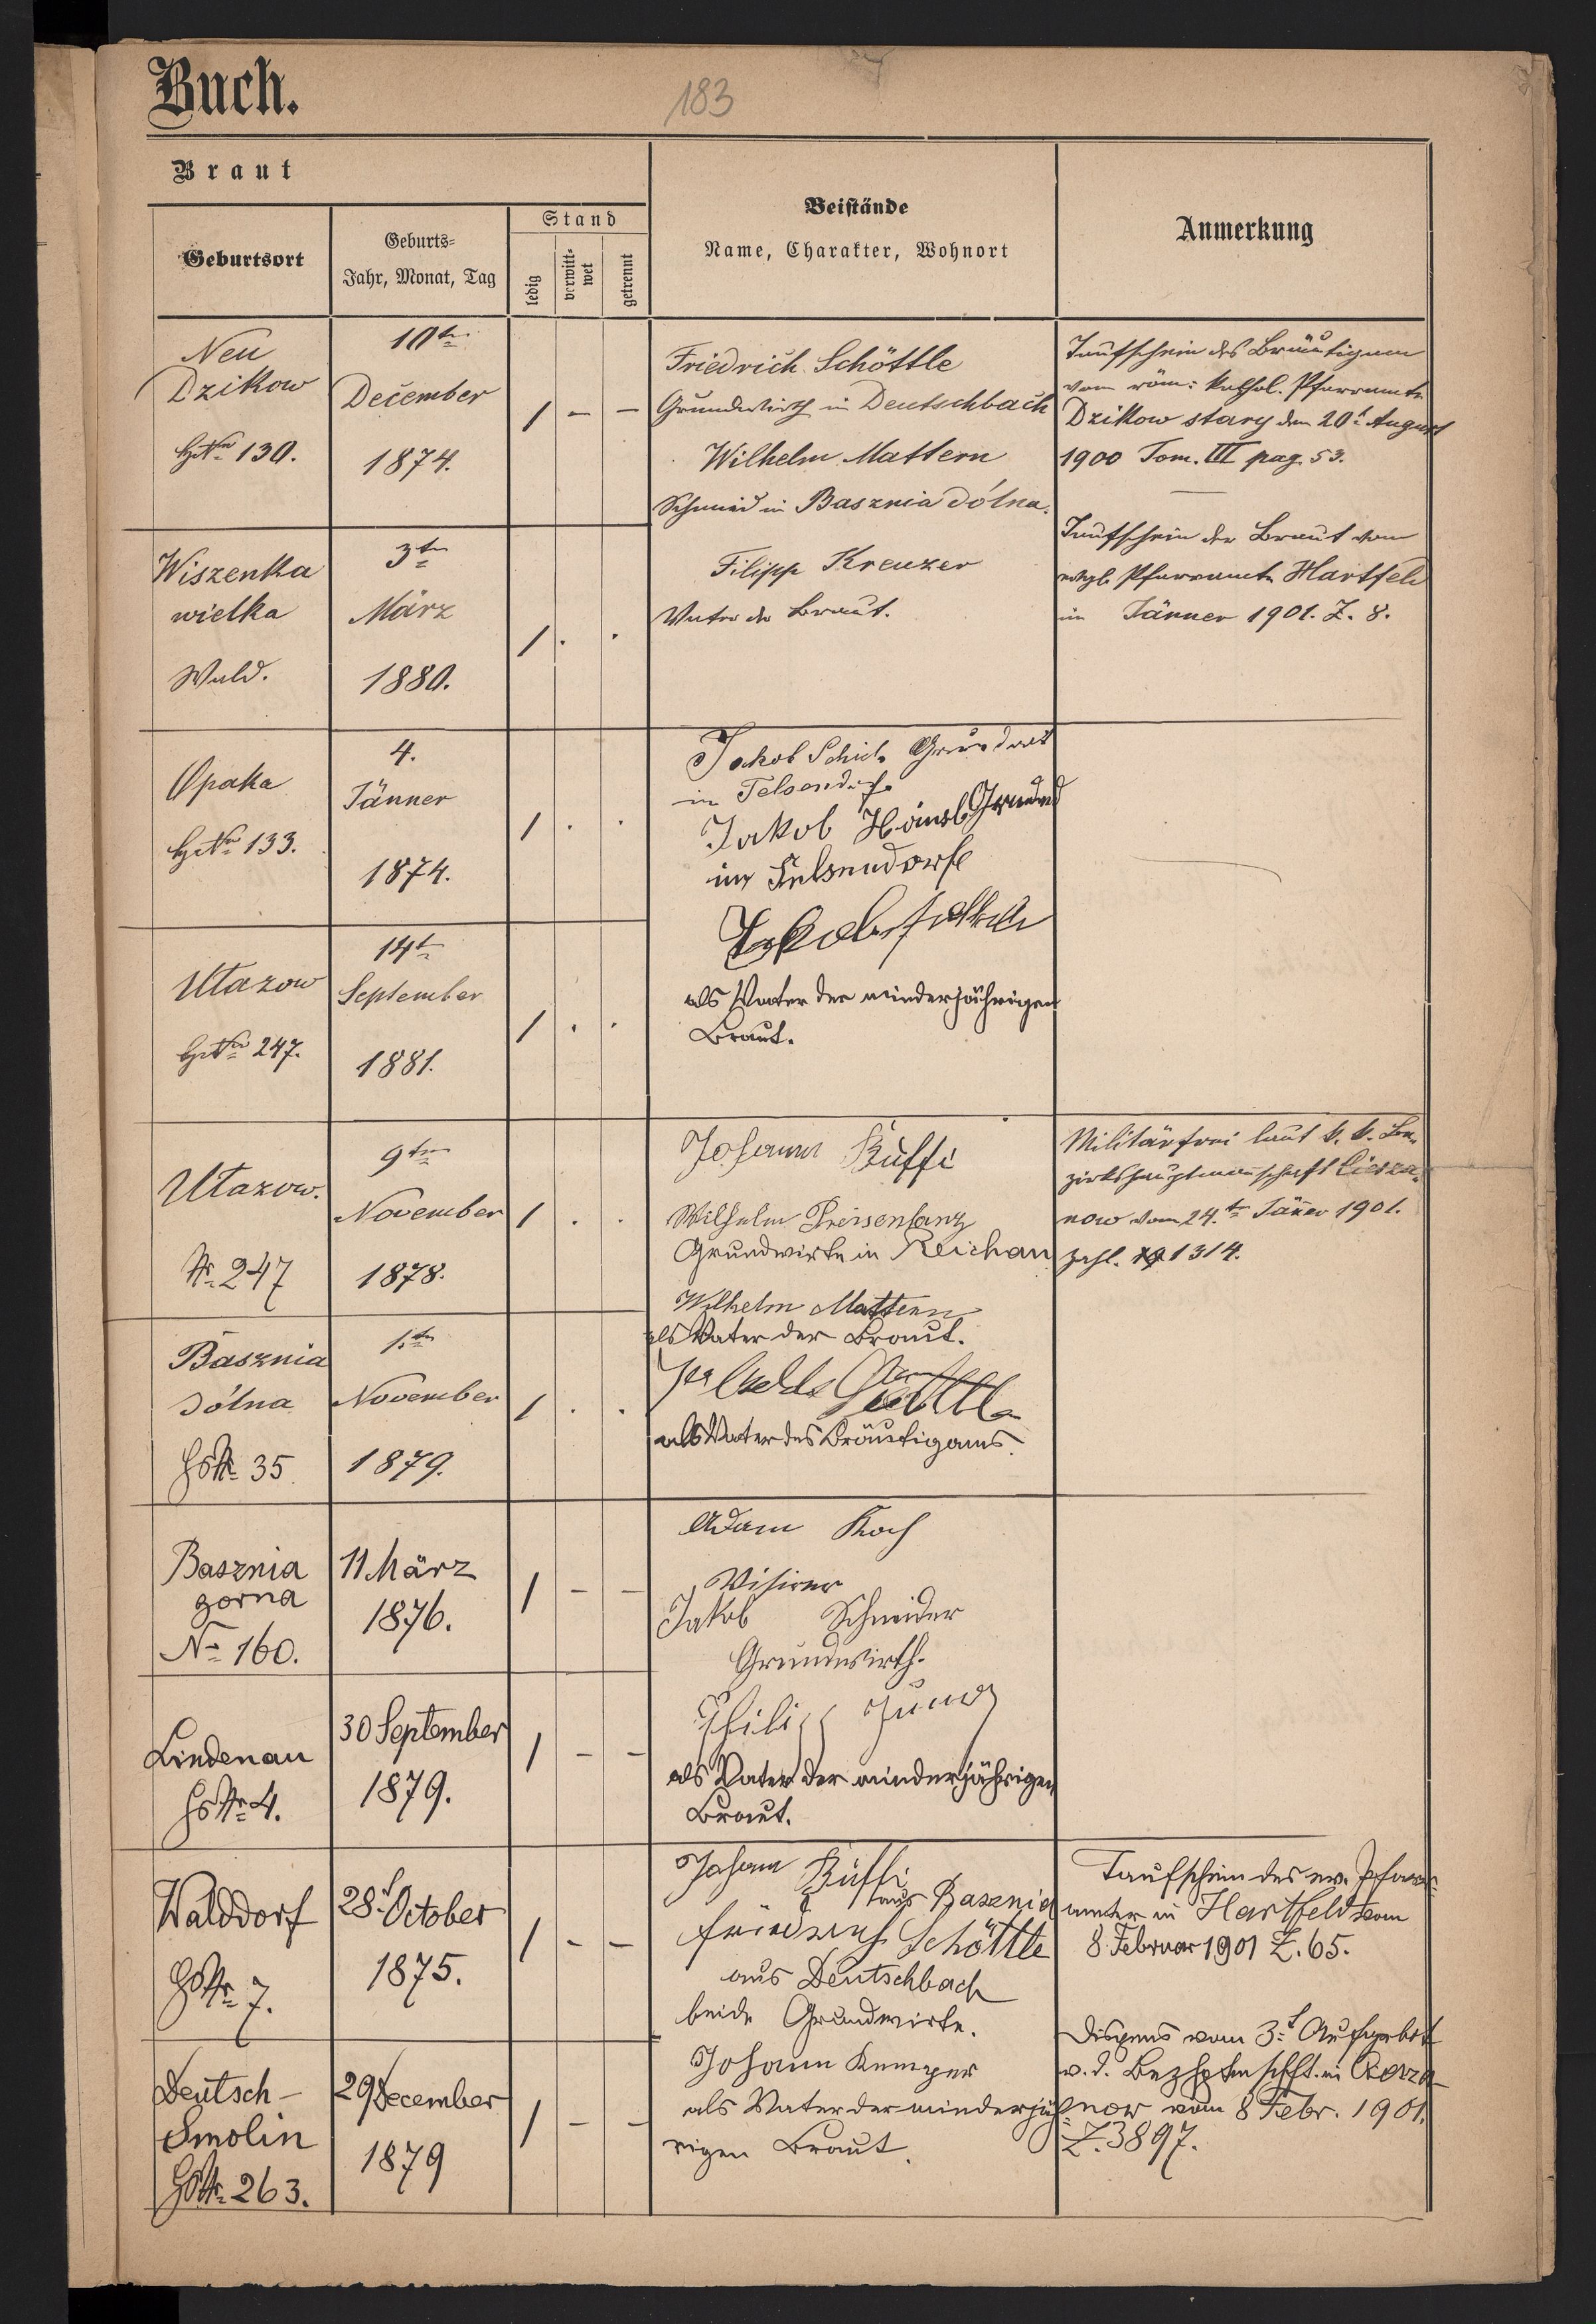 Buch.
183
Braut
Geburtsort
Geburts-
Jahr, Monat, Tag
Stand
ledig
verwitt-
wet
getrennt
Beistände
Name, Charakter, Wohnort
Anmerkung
Neu
Dzikow
HsNro 130.
10te
December
1874.
1 – –
Friedrich Schöttle
Grundwirth in Deutschbach
Wilhelm Mattern
Schmied in Basznia dólna.
Taufschein des Bräutigam
vom röm: kathol. Pfarramte
Dzikow stary den 20t August
1900 Tom. III pag. 53.
Wiszenka
wielka
Wald.
3ten
März
1880.
1 . .
Filipp Kreuzer
Vater der Braut.
Taufschein der Braut vom
evgl. Pfarramte Hartfeld
im Jänner 1901. Z. 8.
Opaka
HsNro 133.
4.
Jänner
1874.
1 . .
Jakob Schick Grundwirt
in Felsendorf
Jakob Grundwirt
in Felsendorf
Utazow
HsNro 247.
14t
September
1881.
1 . .
Jakob
als Vater der minderjährigen
Braut.
Utazow.
Nr. 247
9ten
November
1878.
1 . .
Johann Rüffi
Wilhelm Preisentanz
Grundwirte in Reichau
Militärfrei laut k. k. Be-
zirkshauptmannschaft Ciesza-
now vom 24.ten Jänner 1901.
Zahl. 1314.
Basznia
dólna
HsNr. 35
1.ten
November
1879.
1 . .
Wilhelm Mattern
als Vater der Braut.
als Vater des Bräutigams.
Basznia
gorna
No 160.
11 März
1876.
1 – –
Adam Koch
Visirer
Jakob Schneider
Grundwirth.
Lindenau
HsNr. 4.
30 September
1879.
1 – –
Philipp Jung
als Vater der minderjährigen
Braut.
Walddorf
HsNr. 7.
28t. October
1875.
1 – –
Johann Rüffi
aus Basznia
Friedrich Schöttle
aus Deutschbach
beide Grundwirte.
Taufschein des ev. Pfarr-
amtes in Hartfeld vom
8. Februar 1901 Z. 65.
Deutsch-
Smolin
HsNr. 263.
29 December
1879
1 – –
Johann Kemper
als Vater der minderjäh-
rigen Braut.
Dispens vom 3t Aufgebot
v. d. Bezhptmschft. in Ciesza-
now vom 8 Febr. 1901.
Z. 3897.